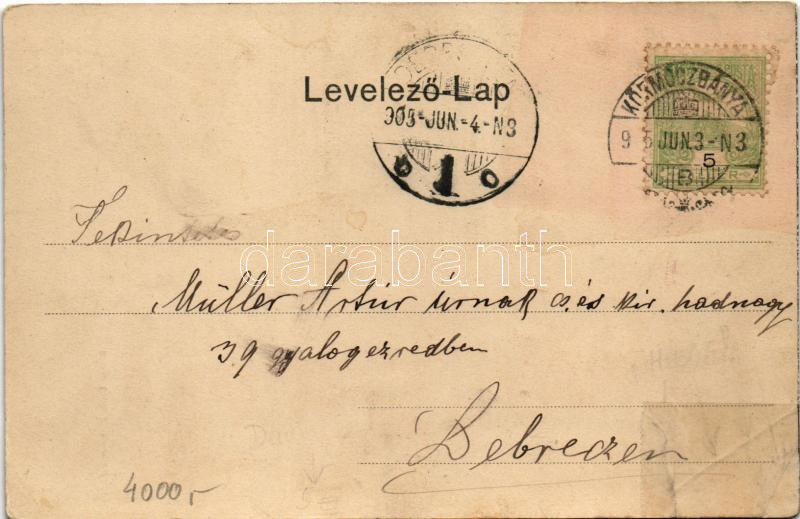 Levelező-Lap
DEBRECZEN
905-JUN.-4-N3
1
KÖRMÖCZBÁNYA
9 5 JUN.3-N3
5
B
Tekintetes
darabanth
Müller Artúr úrnak cs. és kir. hadnagy
39 gyalogezredben
Debreczen
4000,-